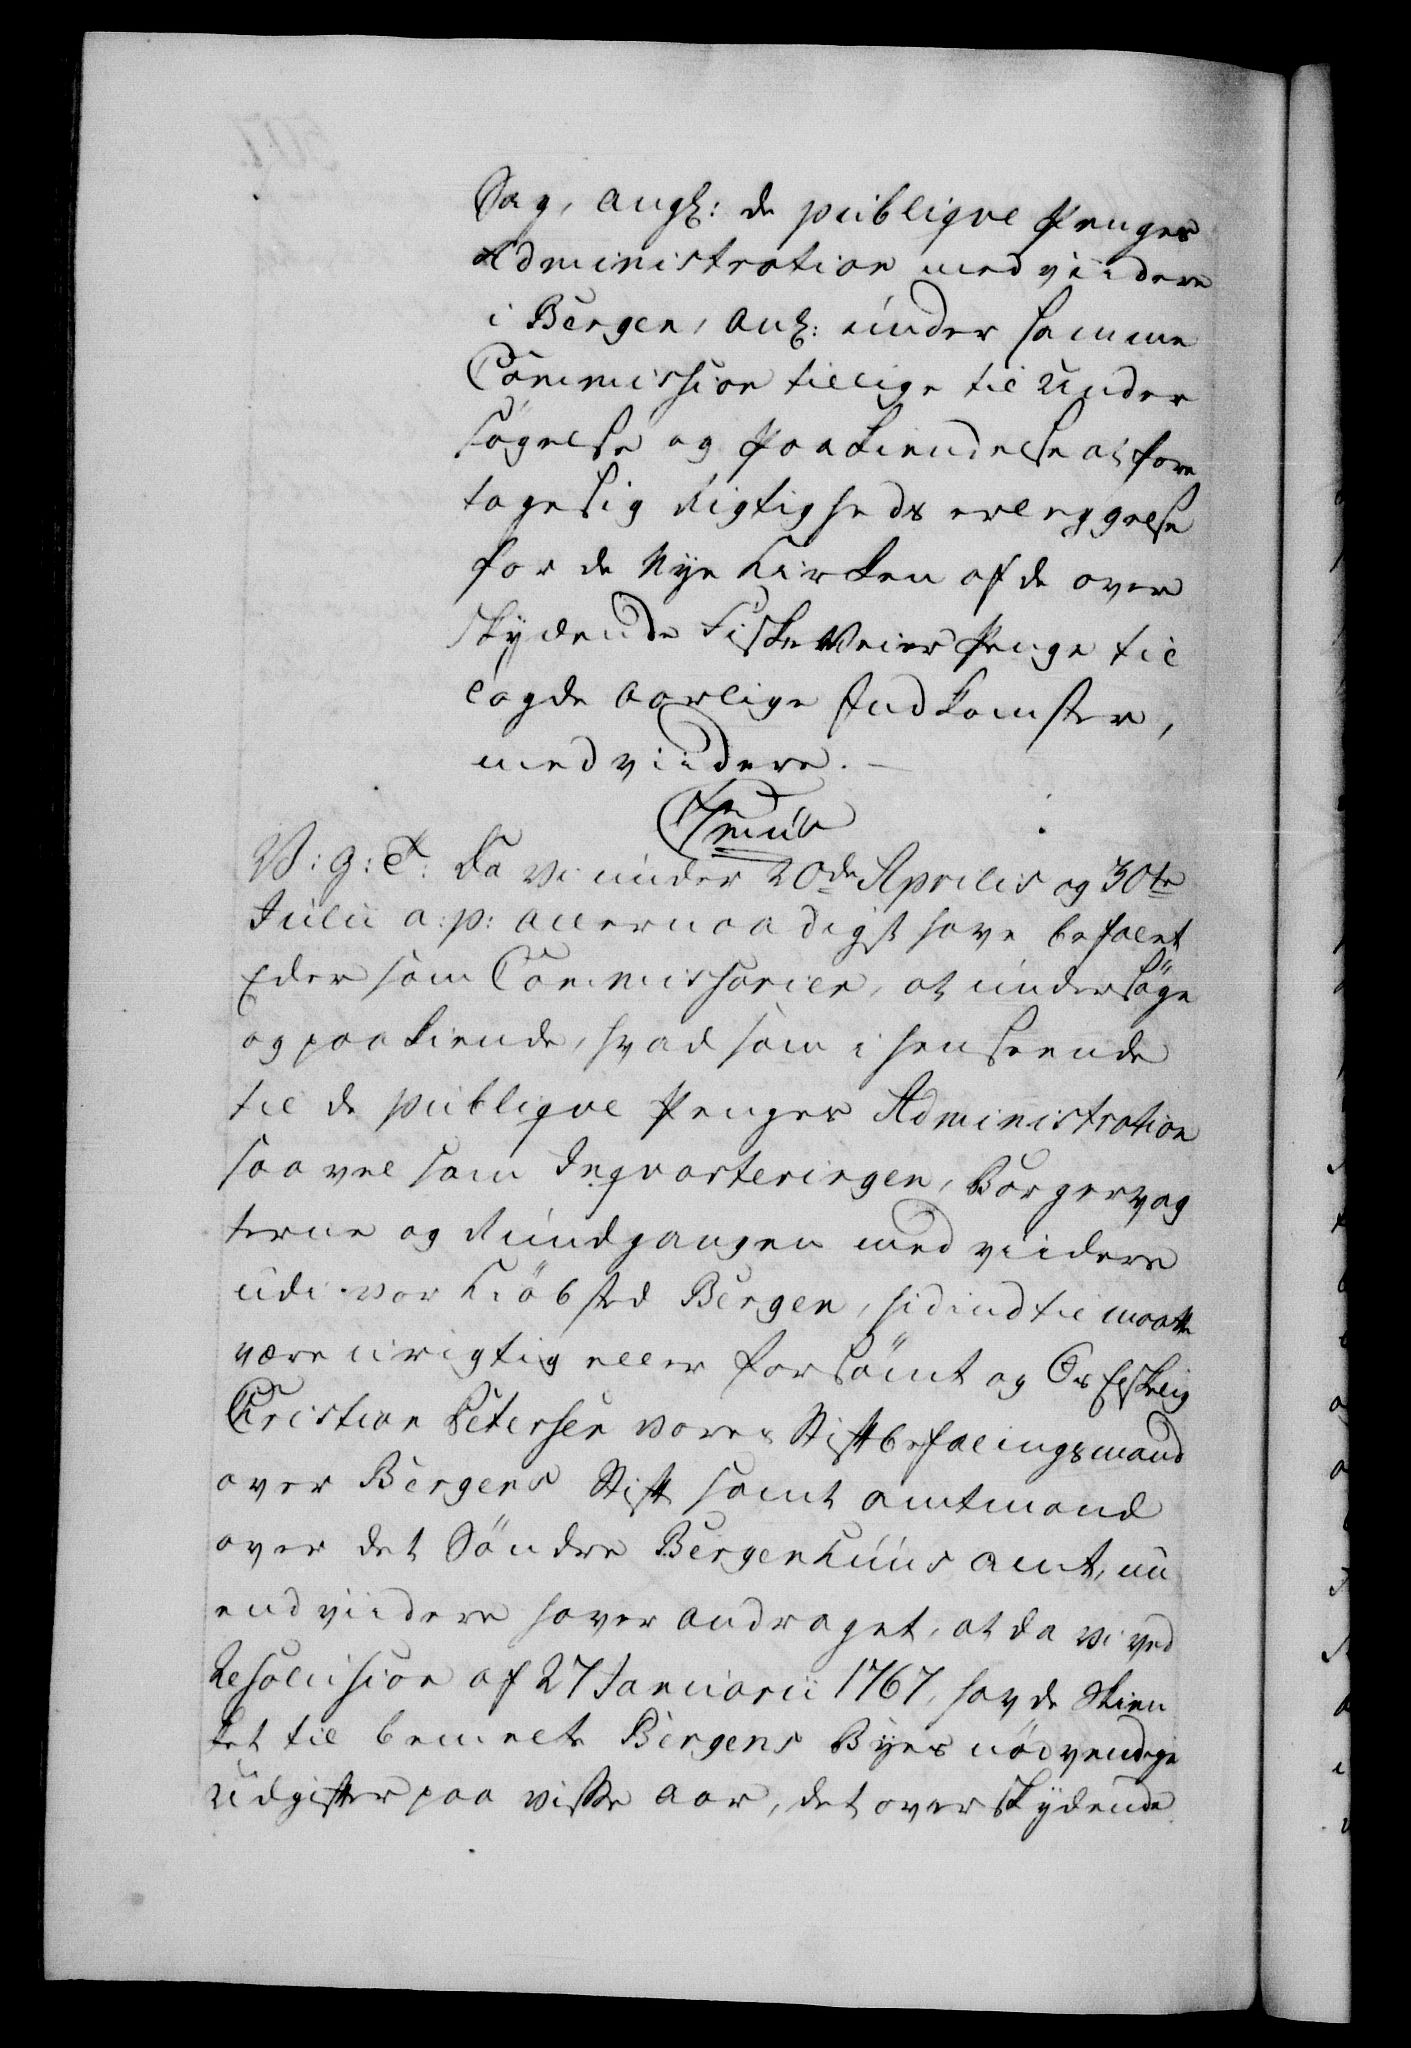 Sag, angl: de publiqve Penges
Administration med viidere
i Bergen, anl: under samme
Commission tillige til Under
søgelse og Paakiendelse at fore
tage sig Rigtigheds erleggelse
for de Nye Kirken af de over
skydende Fiske Veier Penge til
lagde aarlige Indkomster,
med viidere.
V: g: T: Da vi under 20de Aprilis og 30te
Julii a: p: allernaadigst have befalet
Eder som Commissarier, at undersøge
og paakiende, hvad som i henseende
til de publiqve Penges Administration
saavel som Inqvarteringen, Borgervag
terne og Rundgangen med viidere
udi vor Kiøbsted Bergen, hidindtil maatte
være urigtig eller forsømt og Os Elskelig
Christian Petersen vores Stiftbefalingsmand
over Bergens Stift samt amtmand
over det Søndre Bergenhuus amt, nu
end viidere haver andraget, at da vi ved
Resolution af 27 Januarii 1767, havde skien
ket til bemelte Bergens Byes nødvendige
Udgifter paa visse aar, det overskydende